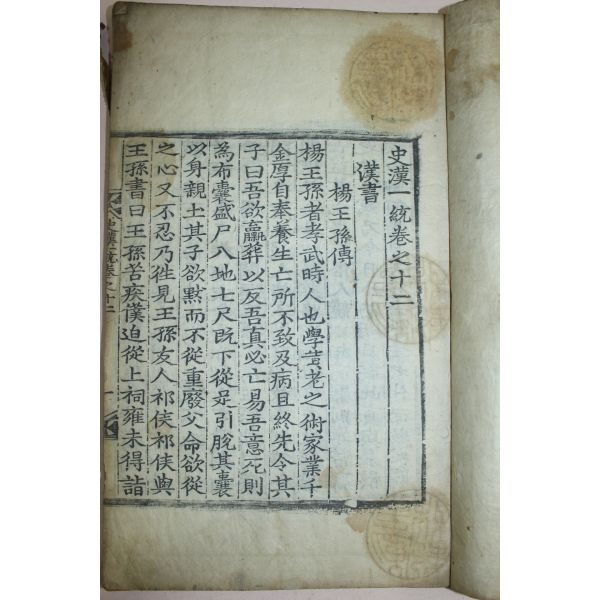 史漢一統卷之十二
漢書
楊王孫傳
楊王孫者孝武時人也學黃老之術家業千
金厚自奉養生亡所不致及病且終先令其
子曰吾欲臝葬以反吾真必亡易吾意死則
為布囊盛尸入地七尺既下從足引脫其囊
以身親土其子欲默而不從重廢父命欲從
之心又不忍乃往見王孫友人祁侯祁侯與
王孫書曰王孫苦疾僕迫從上祠雍未得詣
史漢一統卷之十二